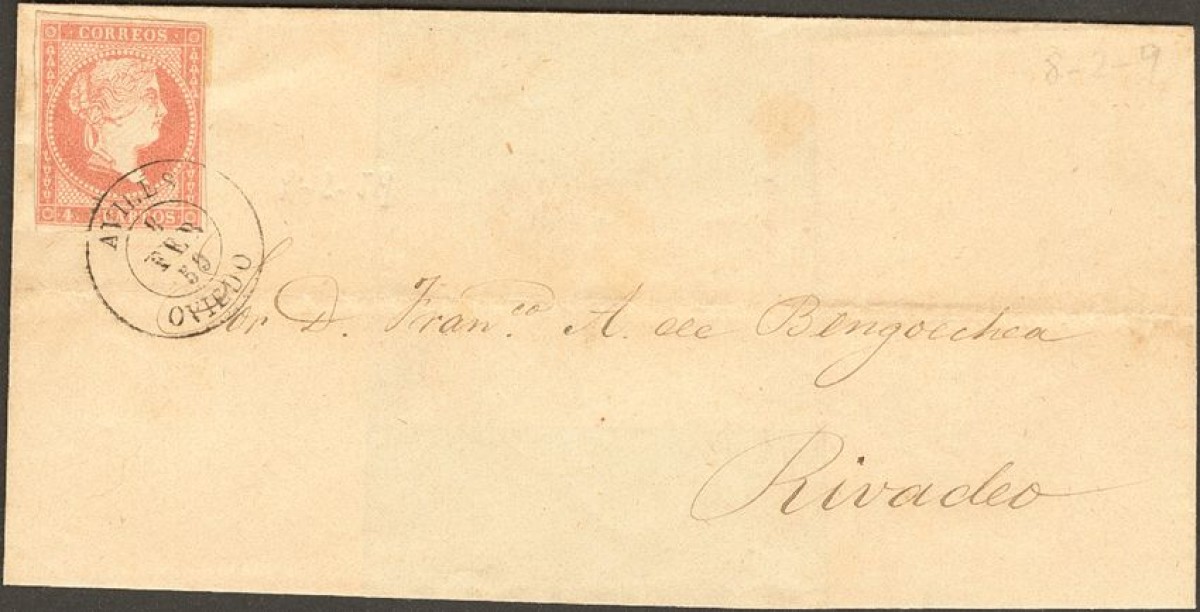 CORREOS
8-2-9
4. CUARTOS
AVILES
FEB
59
OVIEDO
Sor D. Franco A. de Bengoechea
Rivadeo